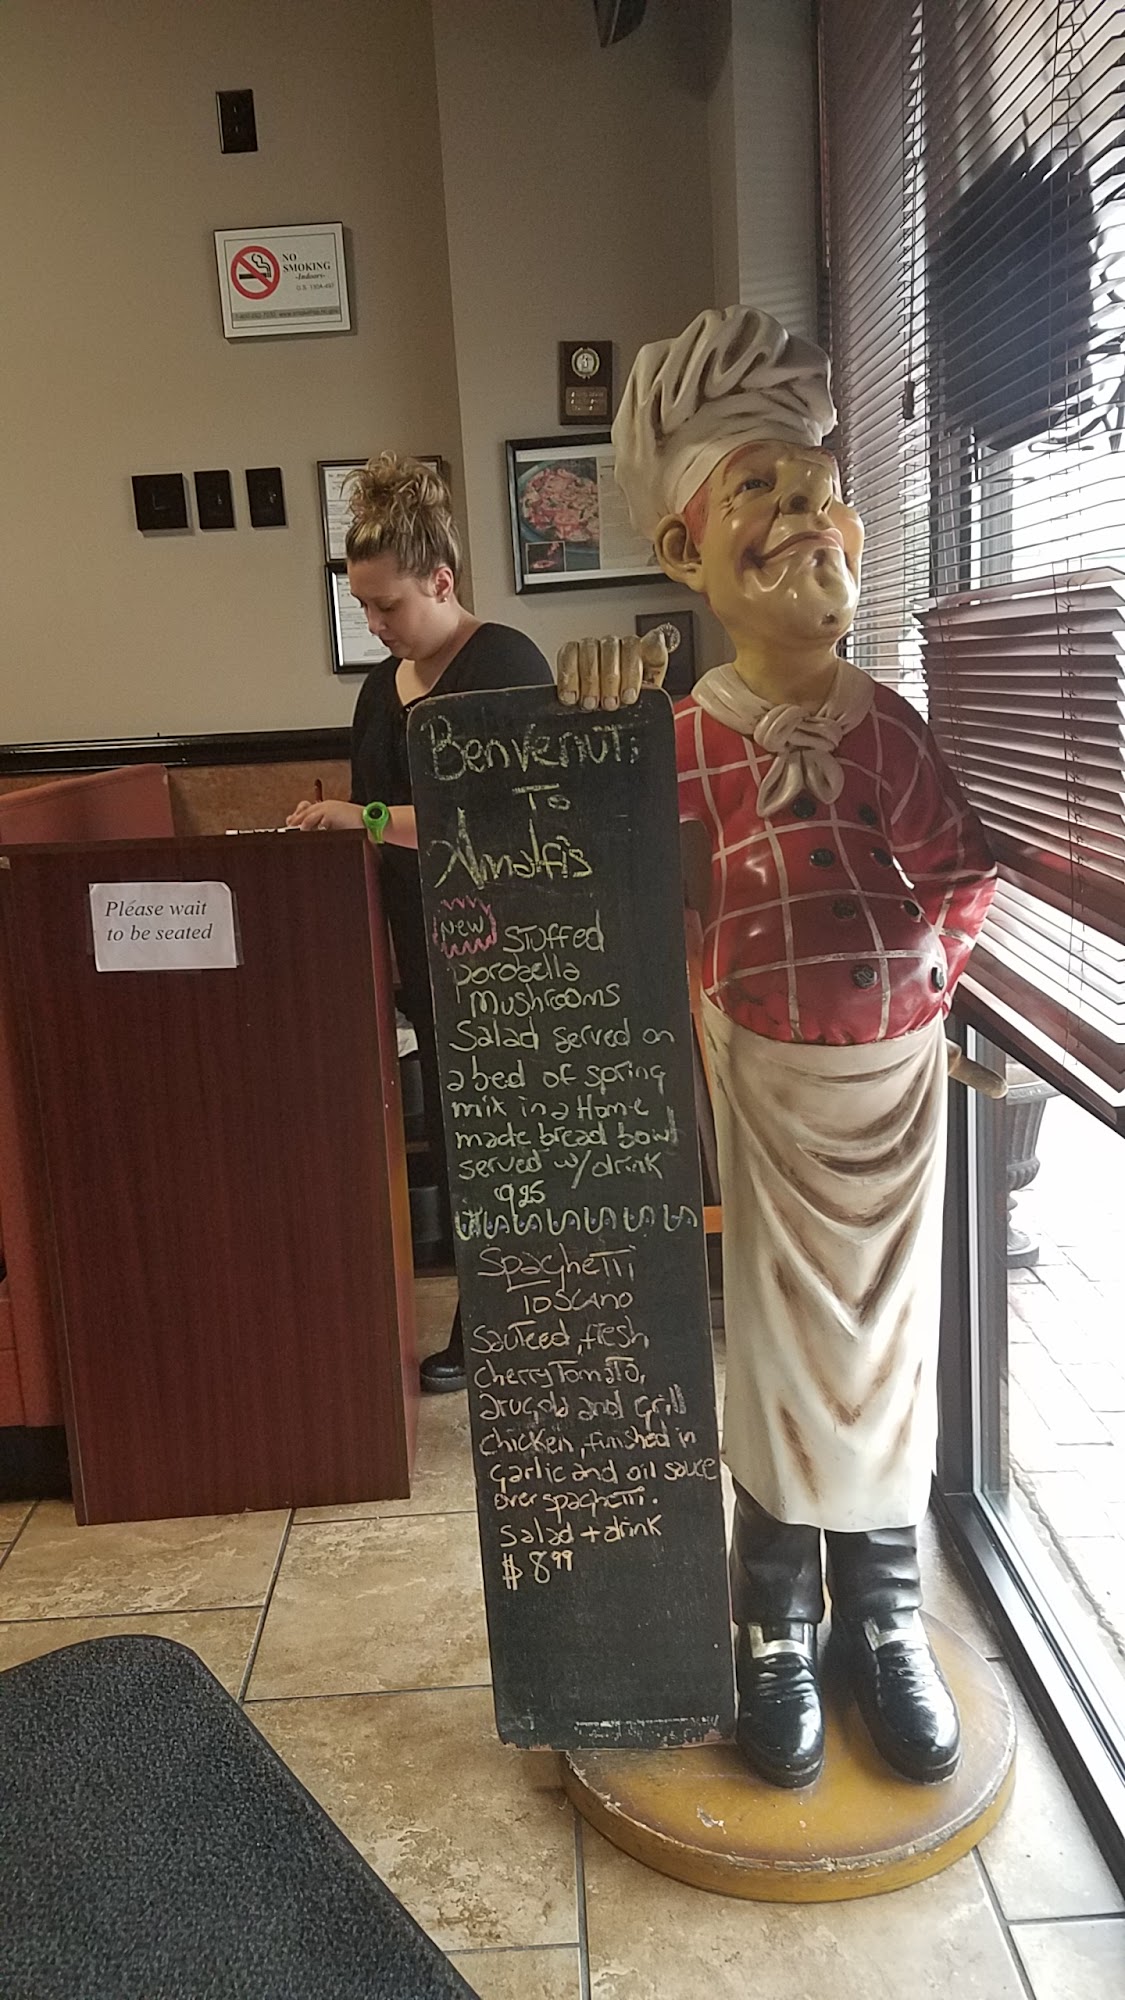 NO
SMOKING
-Indoors-
G.S. 130A-497
Please wait
to be seated
Benvenuti
To
Amalfis
New Stuffed
porobella
Mushrooms
Salad served on
a bed of spring
mix in a Home
made bread bowl
served w/drink
925
Spaghetti
Toscano
Sauteed, fresh
cherry Tomato,
arugola and grill
chicken, finished in
garlic and oil sauce
over spaghetti.
Salad + drink
$8.99